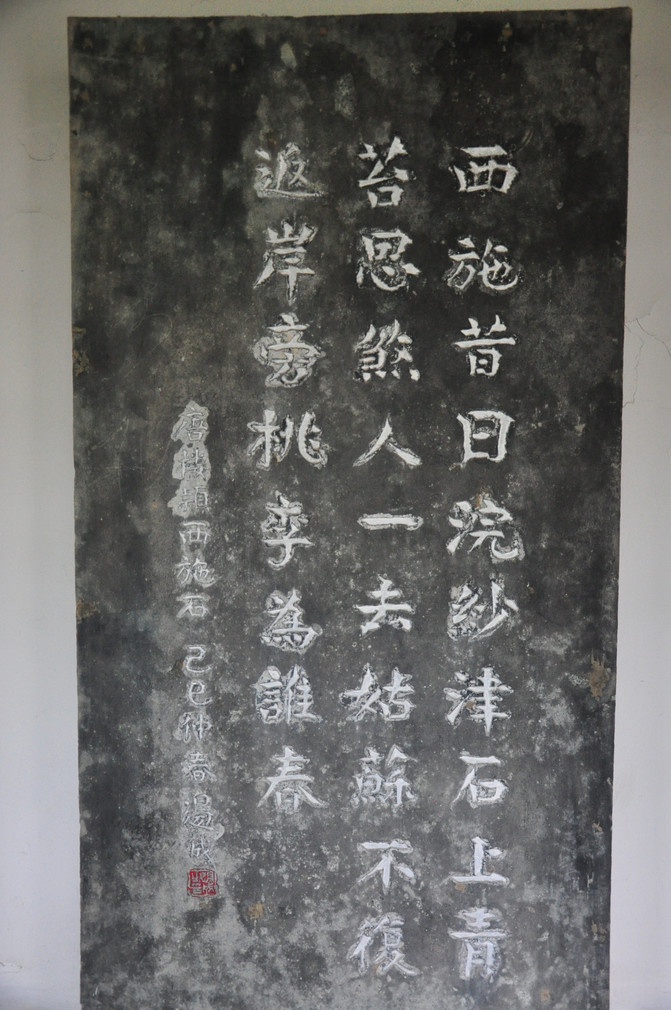 西施昔日浣紗津石上青
苔思煞人一去姑蘇不復
返岸旁桃李為誰春
唐樓穎西施石 己巳仲春湯成